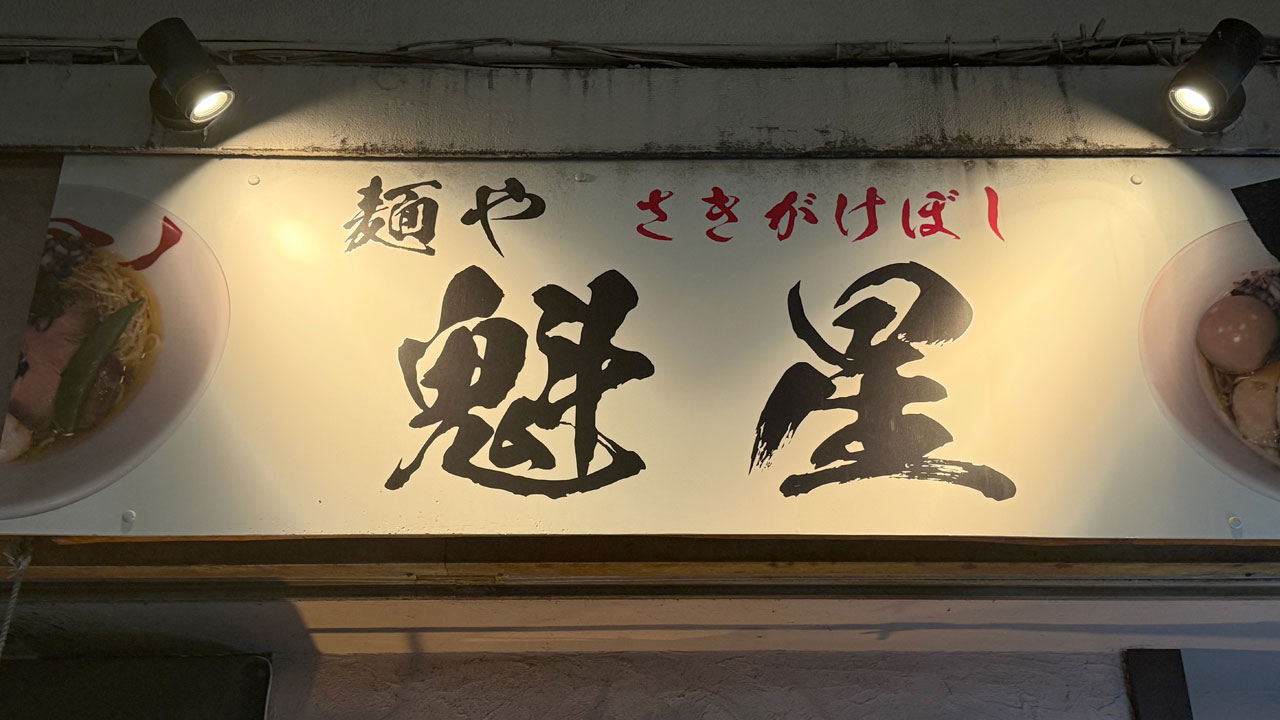 麺や さきがけぼし
魁星